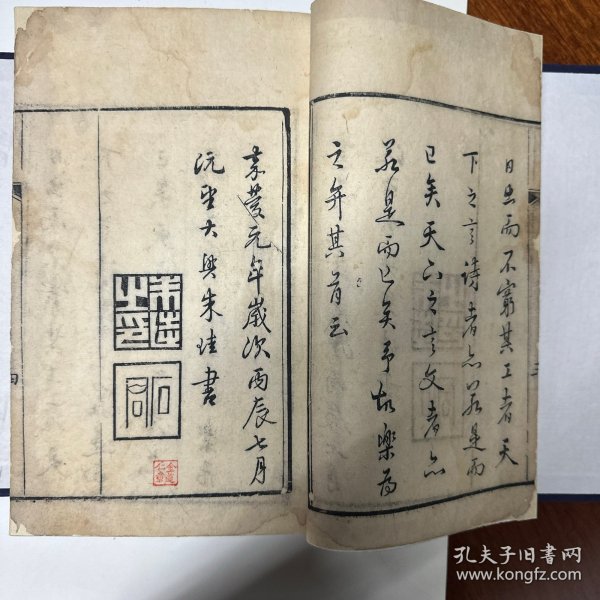 日出而不窮其工者天
下之言詩者亦若是而
已矣天下之言文者亦
若是而已矣予故樂爲
之弁其首云
三
嘉慶元年歲次丙辰七月
既望大興朱珪書
朱珪之印
石君
四
孔夫子旧书网
www.kongfz.com